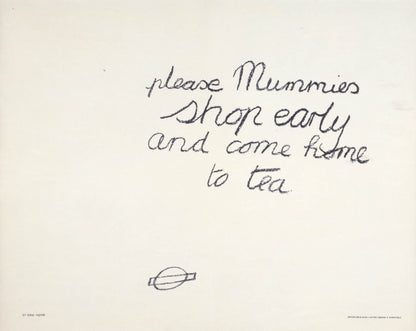 please Mummies
shop early
and come home
to tea